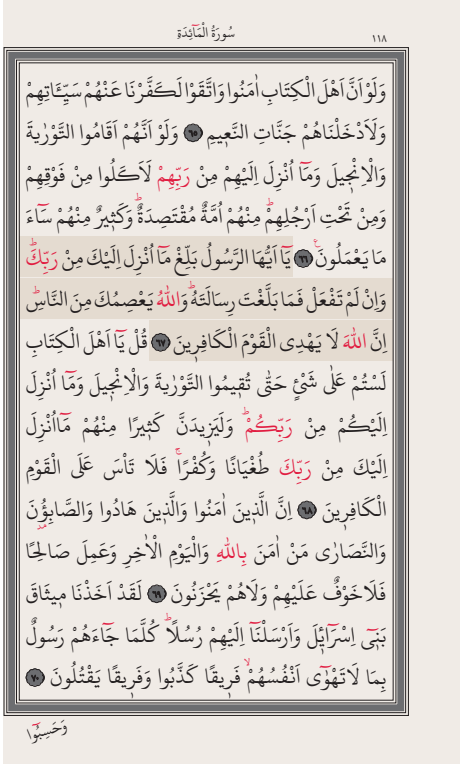 سُورَةُ الْمَٓائِدَةِ ١١٨
وَلَوْ اَنَّ اَهْلَ الْكِتَابِ اٰمَنُوا وَاتَّقَوْا لَكَفَّرْنَا عَنْهُمْ سَيِّـَٔاتِهِمْ
وَلَاَدْخَلْنَاهُمْ جَنَّاتِ النَّع۪يمِ ﴿٦٥﴾ وَلَوْ اَنَّهُمْ اَقَامُوا التَّوْرٰيةَ
وَالْاِنْج۪يلَ وَمَٓا اُنْزِلَ اِلَيْهِمْ مِنْ رَبِّهِمْ لَاَكَلُوا مِنْ فَوْقِهِمْ
وَمِنْ تَحْتِ اَرْجُلِهِمْۜ مِنْهُمْ اُمَّةٌ مُقْتَصِدَةٌۜ وَكَث۪يرٌ مِنْهُمْ سَٓاءَ
مَا يَعْمَلُونَ۟ ﴿٦٦﴾ يَٓا اَيُّهَا الرَّسُولُ بَلِّغْ مَٓا اُنْزِلَ اِلَيْكَ مِنْ رَبِّكَۜ
وَاِنْ لَمْ تَفْعَلْ فَمَا بَلَّغْتَ رِسَالَتَهُۜ وَاللّٰهُ يَعْصِمُكَ مِنَ النَّاسِۜ
اِنَّ اللّٰهَ لَا يَهْدِي الْقَوْمَ الْكَافِر۪ينَ ﴿٦٧﴾ قُلْ يَٓا اَهْلَ الْكِتَابِ
لَسْتُمْ عَلٰى شَيْءٍ حَتّٰى تُق۪يمُوا التَّوْرٰيةَ وَالْاِنْج۪يلَ وَمَٓا اُنْزِلَ
اِلَيْكُمْ مِنْ رَبِّكُمْۜ وَلَيَز۪يدَنَّ كَث۪يرًا مِنْهُمْ مَٓا اُنْزِلَ
اِلَيْكَ مِنْ رَبِّكَ طُغْيَانًا وَكُفْرًاۚ فَلَا تَاْسَ عَلَى الْقَوْمِ
الْكَافِر۪ينَ ﴿٦٨﴾ اِنَّ الَّذ۪ينَ اٰمَنُوا وَالَّذ۪ينَ هَادُوا وَالصَّابِؤُ۫نَ
وَالنَّصَارٰى مَنْ اٰمَنَ بِاللّٰهِ وَالْيَوْمِ الْاٰخِرِ وَعَمِلَ صَالِحًا
فَلَا خَوْفٌ عَلَيْهِمْ وَلَا هُمْ يَحْزَنُونَ ﴿٦٩﴾ لَقَدْ اَخَذْنَا م۪يثَاقَ
بَن۪ٓي اِسْرَٓائ۪لَ وَاَرْسَلْنَٓا اِلَيْهِمْ رُسُلًاۜ كُلَّمَا جَٓاءَهُمْ رَسُولٌ
بِمَا لَا تَهْوٰٓى اَنْفُسُهُمْۙ فَر۪يقًا كَذَّبُوا وَفَر۪يقًا يَقْتُلُونَ ﴿٧٠﴾
وَحَسِبُٓوا